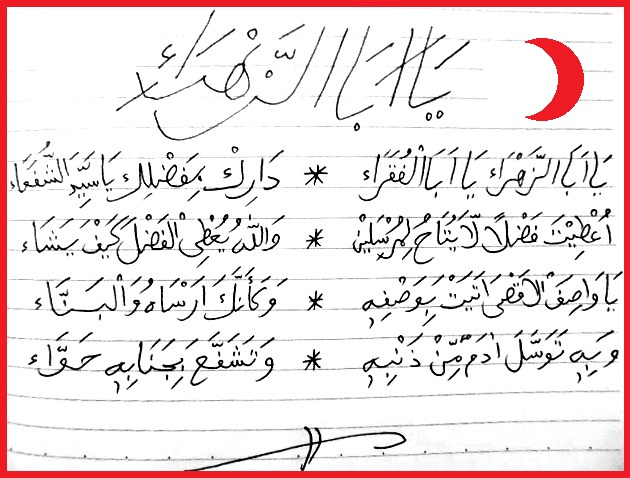 يَا اَبَا الزَّهْرَاء
يَا اَبَا الزَّهْرَاء يَا اَبَا الْفُقَرَاء * دَارِكْ بِفَضْلِكَ يَا سَيِّدَ الشُّفَعَاء
اُعْطِيْتَ فَضْلًا لَّا يُتَاحُ لِمُرْسَلِيْنْ * وَاللّٰهُ يُعْطِيْ الْفَضْلَ كَيْفَ يَشَاء
يَا وَاصِفَ الْاَقْصٰى اَتَيْتَ بِوَصْفِهٖ * وَكَاَنَّكَ الرَّسَّامُ وَالْبَنَّاء
وَبِهٖ تَوَسَّلَ اٰدَمٌ مِّنْ ذَنْبِهٖ * وَتَشَفَّعَ بِجَنَابِهٖ حَوَّاء